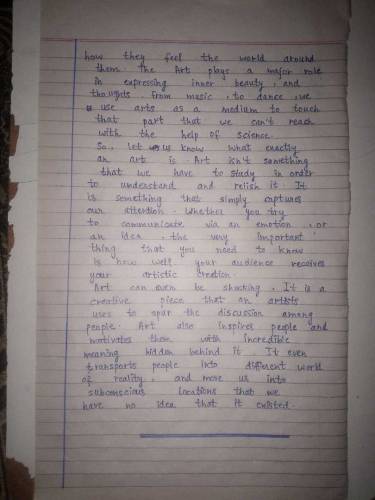 how they feel the world around
them. The Art plays a major role
in expressing inner beauty, and
thoughts from music, to dance, we
use arts as a medium to touch
that part that we can't reach
with the help of science.
So, let us know what exactly
an art is Art isn't something
that we have to study in order
to understand and relish it. It
is something that simply captures
our attention. Whether you try
to communicate via an emotion, or
an idea, the very important
thing that you need to know
is how well your audience receives
your artistic creation.
Art can even be shocking. It is a
creative piece that an artists
uses to spur the discussion among
people. Art also inspires people and
motivates them with incredible
meaning hidden behind it. It even
transports people into different world
of reality, and move us into
subconscious locations that we
have no idea that it existed.